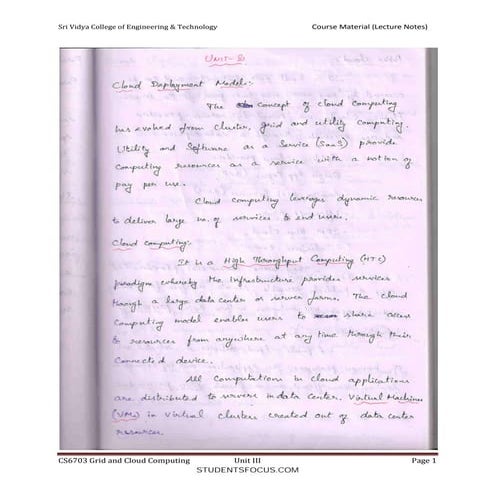 Sri Vidya College of Engineering & Technology Course Material (Lecture Notes)
UNIT-
Cloud Deployment Models:-
The concept of cloud computing
has evolved from cluster, grid and utility computing.
Utility and Software as a Service (SaaS) provide
computing resources as a service with a notion of
pay per use.
Cloud computing leverages dynamic resources
to deliver large no. of services to end users.
Cloud computing:-
It is a High Throughput Computing (HTC)
paradigm whereby the infrastructure provides services
through a large data center or server farms. The cloud
computing model enables users to share access
to resources from anywhere at any time through their
connected device.
All Computations in cloud applications
are distributed to servers in data center. Virtual Machines
(VMs) in virtual clusters created out of data center
resources.
CS6703 Grid and Cloud Computing Unit III Page 1
STUDENTSFOCUS.COM